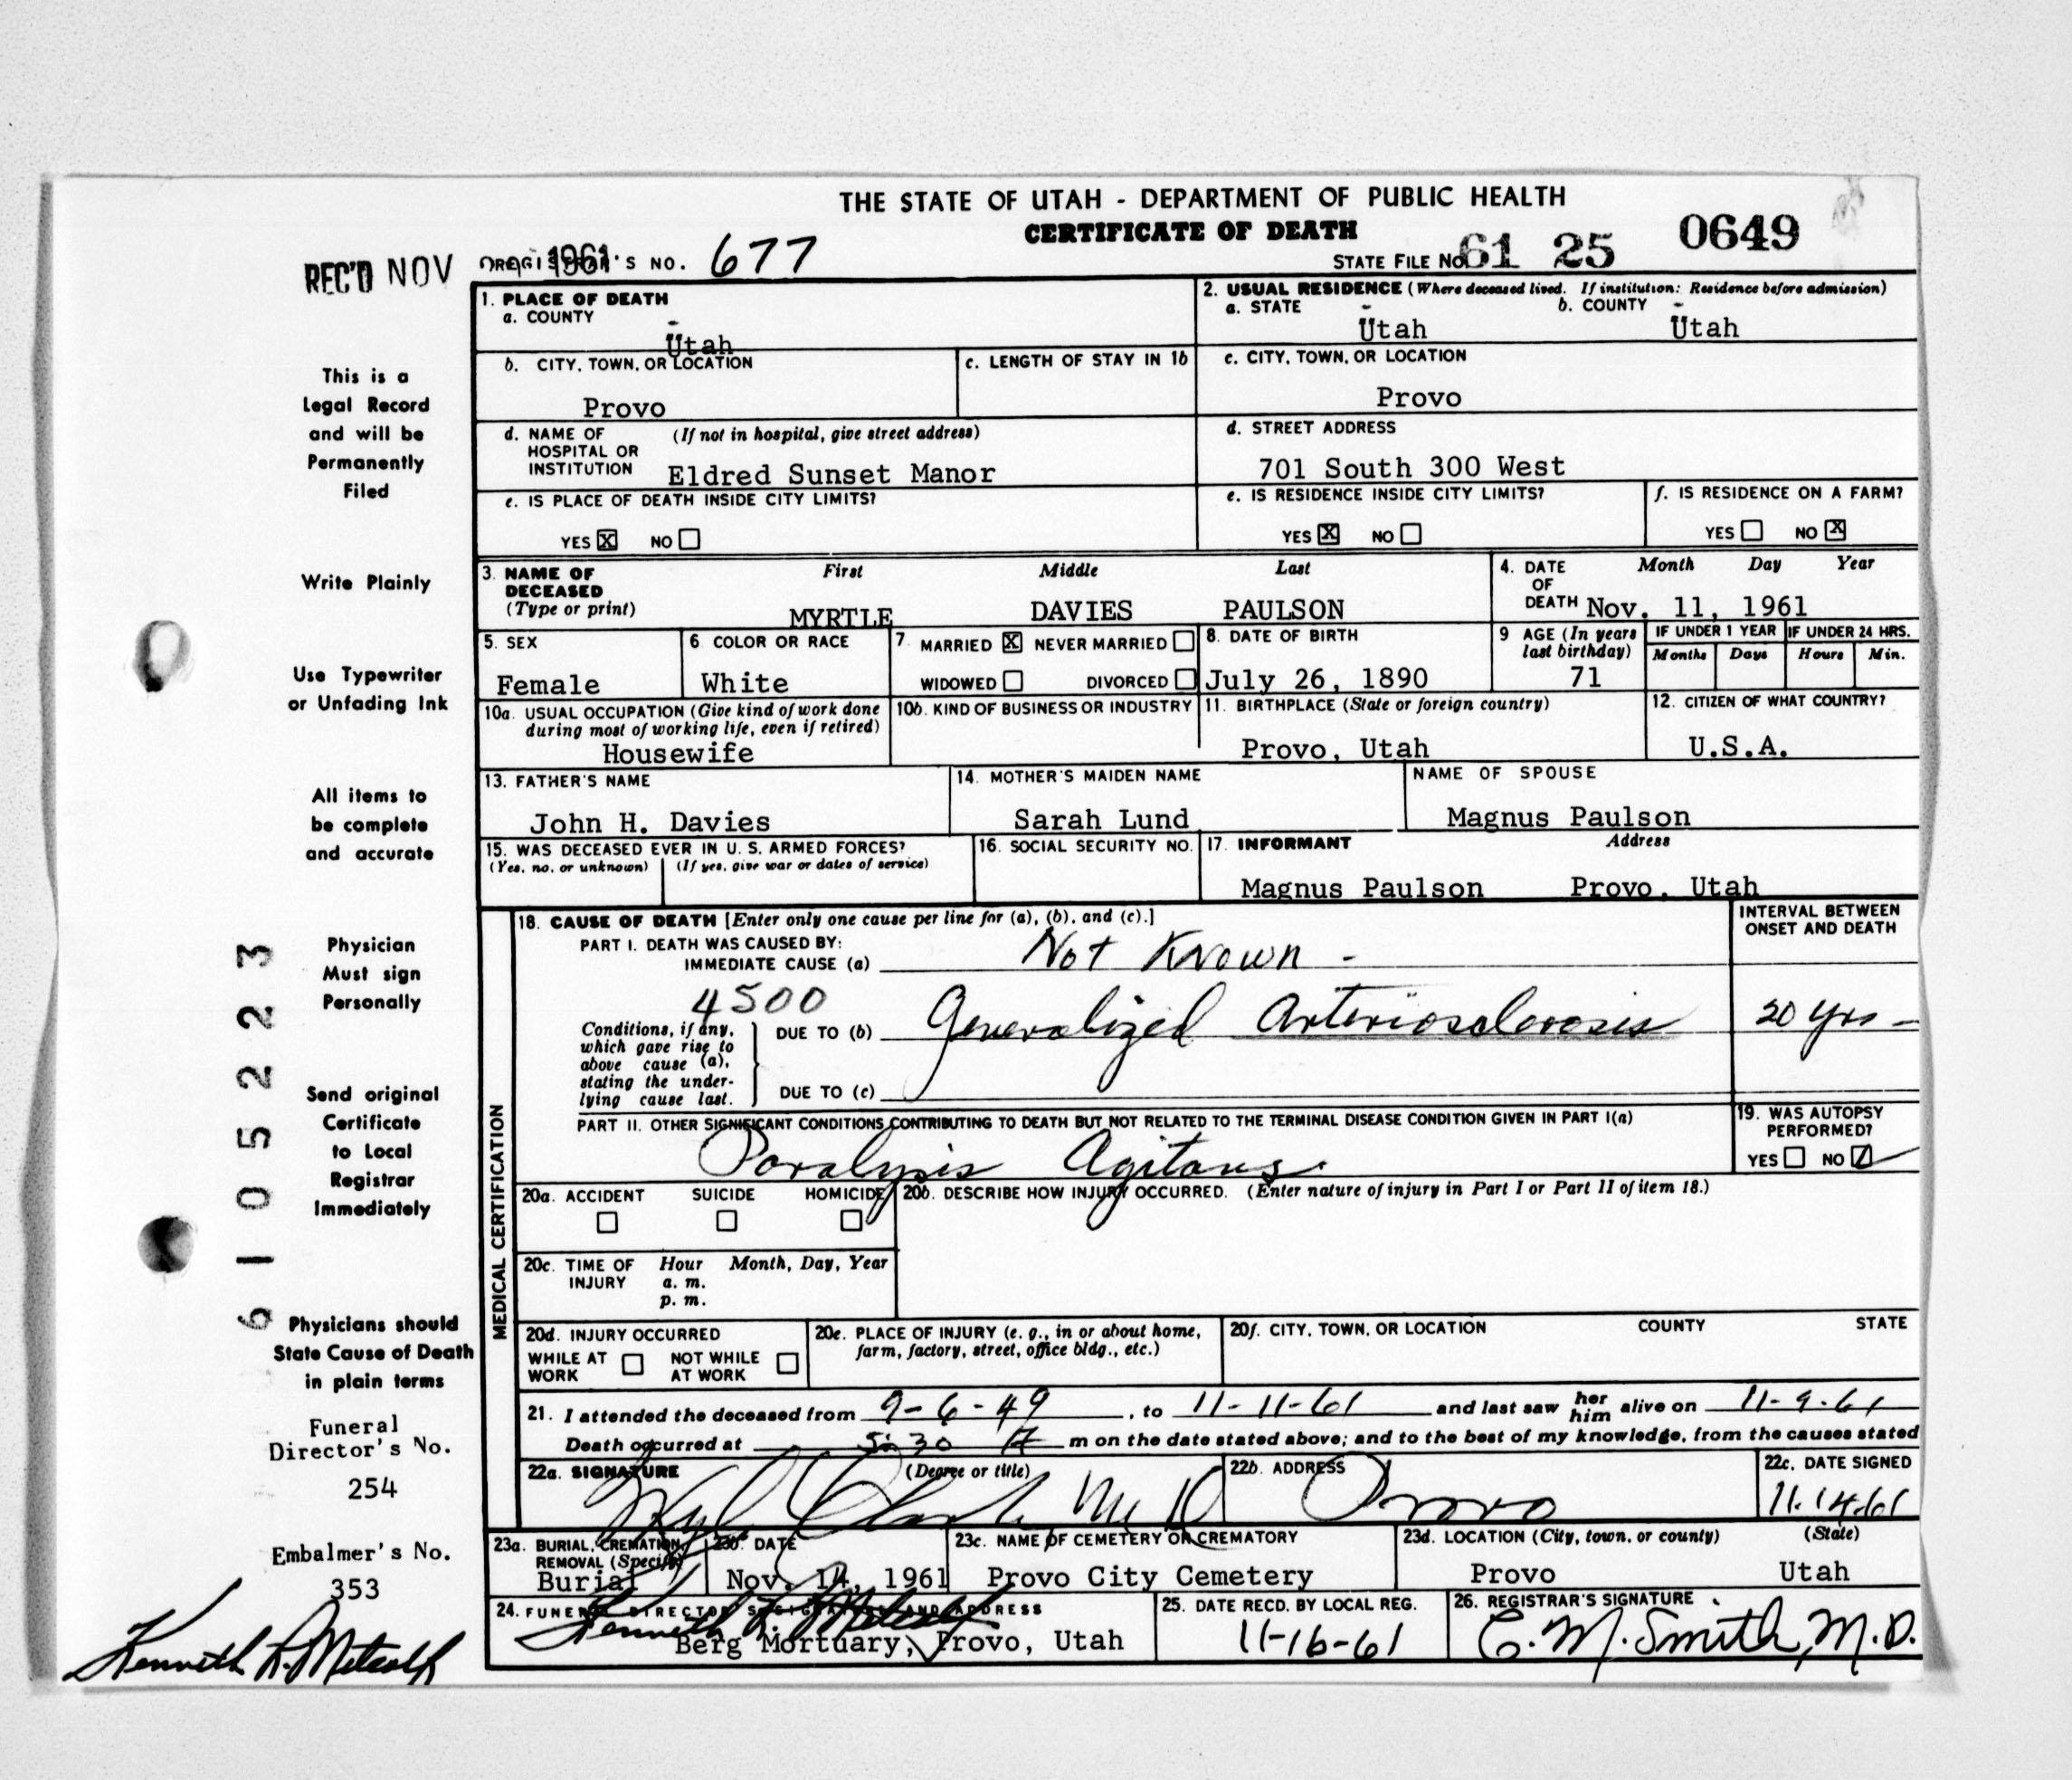 THE STATE OF UTAH - DEPARTMENT OF PUBLIC HEALTH
CERTIFICATE OF DEATH
0649
REC'D NOV 1961
REGISTRAR'S NO. 677
STATE FILE NO. 61 25
1. PLACE OF DEATH
a. COUNTY
Utah
2. USUAL RESIDENCE (Where deceased lived. If institution: Residence before admission)
a. STATE
Utah
b. COUNTY
Utah
b. CITY, TOWN, OR LOCATION
Provo
c. LENGTH OF STAY IN 1b
c. CITY, TOWN, OR LOCATION
Provo
d. NAME OF HOSPITAL OR INSTITUTION
(If not in hospital, give street address)
Eldred Sunset Manor
d. STREET ADDRESS
701 South 300 West
e. IS PLACE OF DEATH INSIDE CITY LIMITS?
YES X NO
e. IS RESIDENCE INSIDE CITY LIMITS?
YES X NO
f. IS RESIDENCE ON A FARM?
YES NO X
3. NAME OF DECEASED
(Type or print)
First Middle Last
MYRTLE DAVIES PAULSON
4. DATE OF DEATH
Month Day Year
Nov. 11, 1961
5. SEX
Female
6. COLOR OR RACE
White
7. MARRIED X NEVER MARRIED
WIDOWED DIVORCED
8. DATE OF BIRTH
July 26, 1890
9 AGE (In years last birthday)
71
IF UNDER 1 YEAR
Months Days
IF UNDER 24 HRS.
Hours Min.
10a. USUAL OCCUPATION (Give kind of work done
during most of working life, even if retired)
Housewife
10b. KIND OF BUSINESS OR INDUSTRY
11. BIRTHPLACE (State or foreign country)
Provo, Utah
12. CITIZEN OF WHAT COUNTRY?
U.S.A.
13. FATHER'S NAME
John H. Davies
14. MOTHER'S MAIDEN NAME
Sarah Lund
NAME OF SPOUSE
Magnus Paulson
15. WAS DECEASED EVER IN U. S. ARMED FORCES?
(Yes, no, or unknown) (If yes, give war or dates of service)
16. SOCIAL SECURITY NO.
17. INFORMANT Address
Magnus Paulson Provo, Utah
MEDICAL CERTIFICATION
18. CAUSE OF DEATH [Enter only one cause per line for (a), (b), and (c).]
INTERVAL BETWEEN
ONSET AND DEATH
PART I. DEATH WAS CAUSED BY:
IMMEDIATE CAUSE (a) Not Known -
4500
Conditions, if any,
which gave rise to
above cause (a),
stating the under-
lying cause last.
DUE TO (b) Generalized Arteriosclerosis 20 yrs -
DUE TO (c)
PART II. OTHER SIGNIFICANT CONDITIONS CONTRIBUTING TO DEATH BUT NOT RELATED TO THE TERMINAL DISEASE CONDITION GIVEN IN PART I(a)
Paralysis Agitans.
19. WAS AUTOPSY
PERFORMED?
YES NO
20a. ACCIDENT SUICIDE HOMICIDE
20b. DESCRIBE HOW INJURY OCCURRED. (Enter nature of injury in Part I or Part II of item 18.)
20c. TIME OF INJURY
Hour Month, Day, Year
a. m.
p. m.
20d. INJURY OCCURRED
WHILE AT WORK NOT WHILE AT WORK
20e. PLACE OF INJURY (e. g., in or about home,
farm, factory, street, office bldg., etc.)
20f. CITY, TOWN, OR LOCATION COUNTY STATE
21. I attended the deceased from 9-6-49, to 11-11-61 and last saw her him alive on 11-9-61
Death occurred at 5:30 m on the date stated above; and to the best of my knowledge, from the causes stated
22a. SIGNATURE (Degree or title)
Clark M D
22b. ADDRESS
Provo
22c. DATE SIGNED
11-14-61
23a. BURIAL, CREMATION,
REMOVAL (Specify)
Burial
23b. DATE
Nov. 14, 1961
23c. NAME OF CEMETERY OR CREMATORY
Provo City Cemetery
23d. LOCATION (City, town, or county) (State)
Provo Utah
24. FUNERAL DIRECTOR'S SIGNATURE AND ADDRESS
Kenneth L. Metcalf
Berg Mortuary, Provo, Utah
25. DATE RECD. BY LOCAL REG.
11-16-61
26. REGISTRAR'S SIGNATURE
C. M. Smith, M.D.
This is a
Legal Record
and will be
Permanently
Filed
Write Plainly
Use Typewriter
or Unfading Ink
All items to
be complete
and accurate
Physician
Must sign
Personally
Send original
Certificate
to Local
Registrar
Immediately
Physicians should
State Cause of Death
in plain terms
Funeral
Director's No.
254
Embalmer's No.
353
Kenneth L. Metcalf
6105223